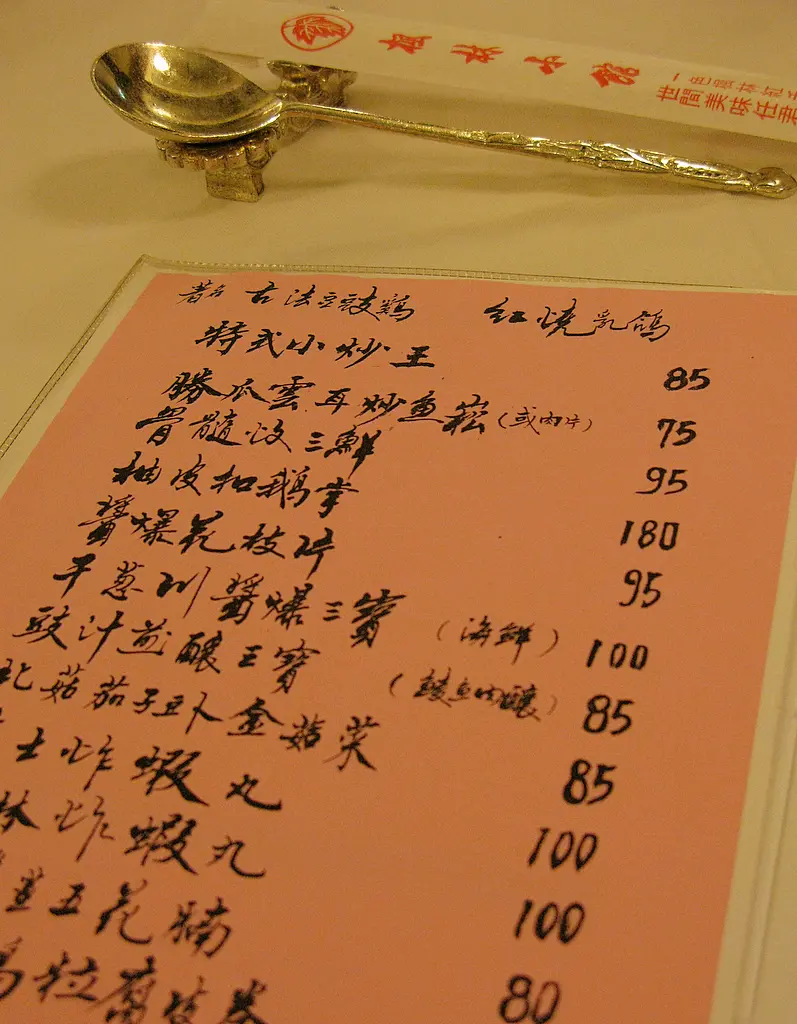 小館
世間美味任
著名 古法豆豉鷄 紅燒乳鴿
特式小炒王 85
勝瓜雲耳炒魚崧(或肉片) 75
骨髓汶三鮮 95
柚皮扣鵝掌 180
醬爆花枝片 95
干葱川醬爆三寶 (海鮮) 100
豉汁煎釀三寶 (鯪魚肉釀) 85
北菇茄子卜金菇菜 85
士炸蝦丸 100
林炸蝦丸 100
五花腩 80
粒腐皮卷